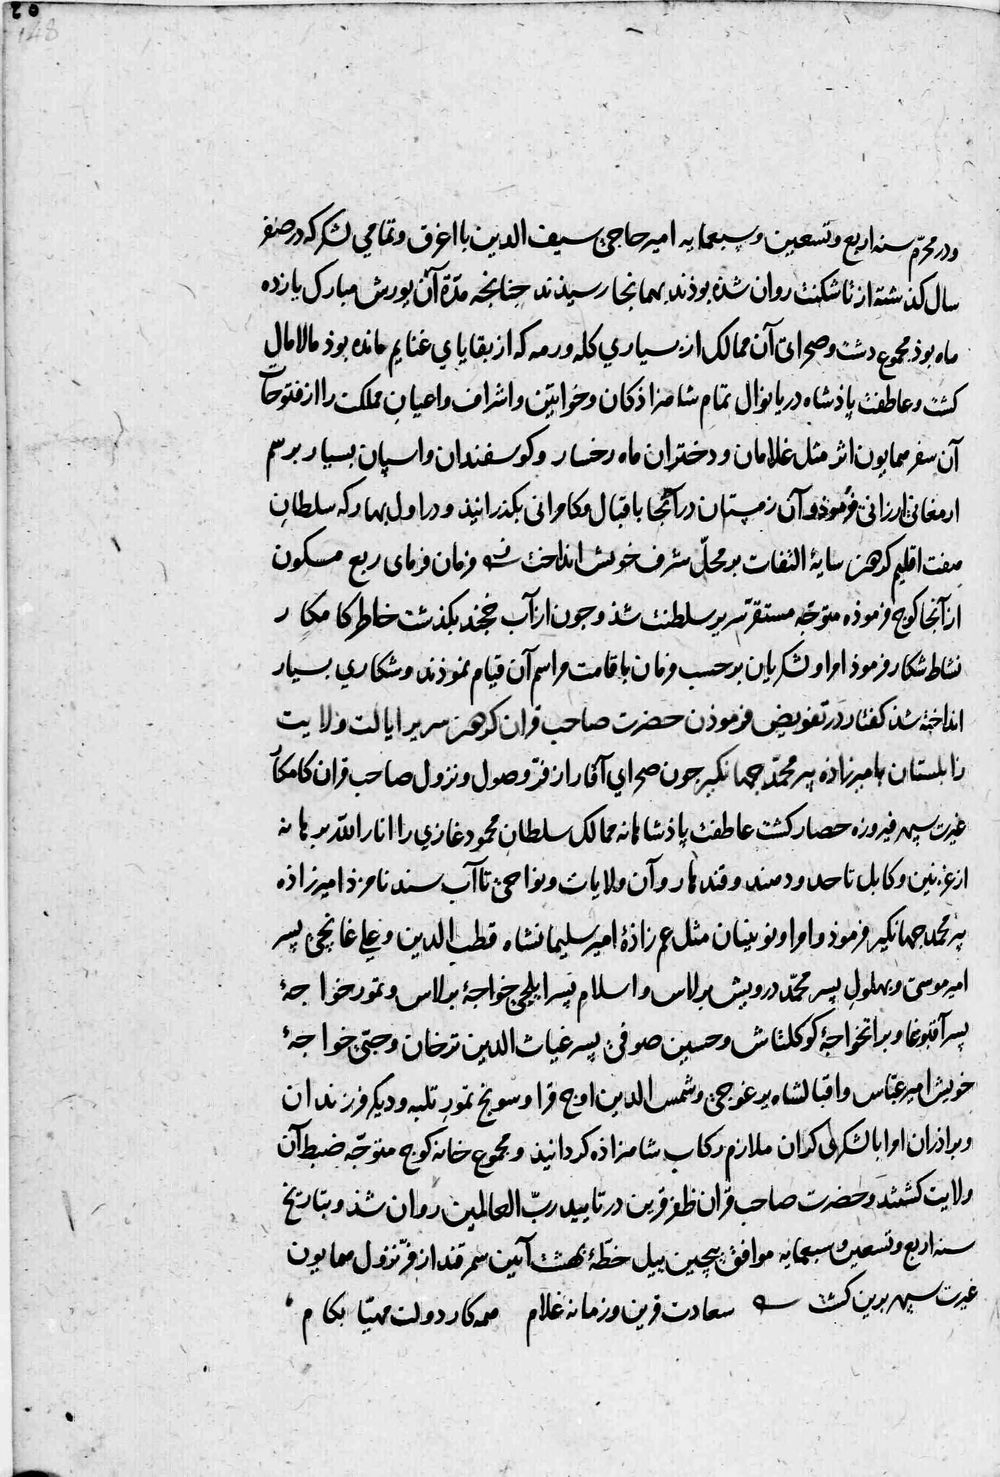 ٢٥
148
ودر محرّم سنه اربع وتسعین وسبعمایه امیر حاجی سیف الدین با اغرق وتمامی لشکر که در صفر
سال کذشته از تاشکنت روان شذه بوذند بهمانجا رسیذند جنانجه مدّة آن یورش مبارک یازده
ماه بوذ مجموع دشت وصحرای آن ممالک از بسیاری کله ورمه که از بقایای غنایم مانده بوذ مالامال
کشت وعاطفت پاذشاه دریا نوال تمام شاهزاذکان وخواتین واشراف واعیان مملکت را از فتوحات
آن سفر همایون اثر مثل غلامان ودختران ماه رخسار وکوسفندان واسپان بسیار برسم
ارمغانی ارزانی فرموذ وآن زمستان در آنجا باقبال وکامرانی بکذرانیذ ودر اول بهار که سلطان
هفت اقلیم کردون سایۀ التفات بر محلّ شرف خویش انداخت فرمان فرمای ربع مسکون
از آنجا کوچ فرموذه متوجّه مستقرّ سریر سلطنت شذ وجون از آب خجند بکذشت خاطر کامکار
نشاط شکار فرموذ امرا ولشکریان بر حسب فرمان باقامت مراسم آن قیام نموذند وشکاری بسیار
انداخته شذ کفتار در تفویض فرموذن حضرت صاحب قران سریر ایالت ولایت
زابلستان بامیرزاذه پیر محمّد جهانکیر جون صحرای آقار از فرّ وصول ونزول صاحب قران کامکار
غیرت سپهر فیروزه حصار کشت عاطفت پاذشاهانه ممالک سلطان محمود غازی را انار الله برهانه
از غزنین وکابل تا حدود هند وقندهار وآن ولایات ونواحی تا آب سند نامزذ امیرزاذه
پیر محمد جهانکیر فرموذ وامرا ونوینان مثل عم زاذۀ امیر سلیمانشاه قطب الدین وعلی غانجی پسر
امیر موسی وبهلول پسر محمّد درویش برلاس واسلام پسر ایلچی خواجۀ برلاس وتمور خواجۀ
پسر آقبوغا وبراتخواجۀ کوکلتاش وحسین صوفی پسر غیاث الدین ترخان وجتی خواجۀ
خویش امیر عبّاس واقبالشاه یرغوجی وشمس الدین اوج قرا وسونج تمور تلبه ودیکر فرزندان
وبراذران امرا با لشکری کران ملازم رکاب شاهزاذه کردانیذ ومجموع خانه کوچ متوجّه ضبط آن
ولایت کشتند وحضرت صاحب قران ظفر قرین در تایید ربّ العالمین روان شذ وبتاریخ
سنه اربع وتسعین وسبعمایه موافق بیجین ییل خطّۀ بهشت آیین سمرقند از فرّ نزول همایون
غیرت سپهر برین کشت سعادت قرین وزمانه غلام همه کار دولت مهیّا بکام